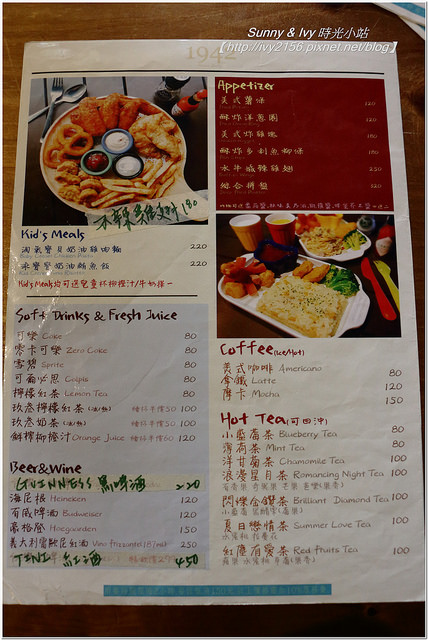 Sunny & Ivy 時光小站
【http://ivy2156.pixnet.net/blog】
1942
Appetizer
美式薯條 120
酥炸洋蔥圈 120
美式炸雞塊
酥炸多利魚柳條
水牛城辣雞翅 230
綜合拼盤
不辣雞翅 180
Kid's Meals
淘氣寶貝奶油雞肉麵 220
乖寶寶奶油鮪魚飯 220
Kid's Meals均可選兒童杯柳橙汁/牛奶擇一
Soft Drinks & Fresh Juice
可樂 Coke 80
零卡可樂 Zero Coke 80
雪碧 Sprite 80
可爾必思 Calpis 80
檸檬紅茶 Lemon Tea 80
玫恋檸檬紅茶 50 100
玫恋奶茶 50 100
鮮榨柳橙汁 Orange Juice 60 120
Beer&Wine
GUINNESS 黑啤酒 220
海尼根 Heineken 120
百威啤酒 Budweiser 120
豪格登 Hoegaarden 150
Vino frizzante(187ml) 250
紅酒 450
Coffee(Ice/Hot)
美式咖啡 Americano 80
拿鐵 Latte 120
摩卡 Mocha 150
Hot Tea(可回沖)
小藍莓茶 Blueberry Tea 80
薄荷茶 Mint Tea 80
洋甘菊茶 Chamomile Tea 100
浪漫星月茶 Romancing Night Tea 100
閃爍金鑽茶 Brilliant Diamond Tea 100
夏日戀情茶 Summer Love Tea 100
紅塵有愛茶 Red fruits Tea 100